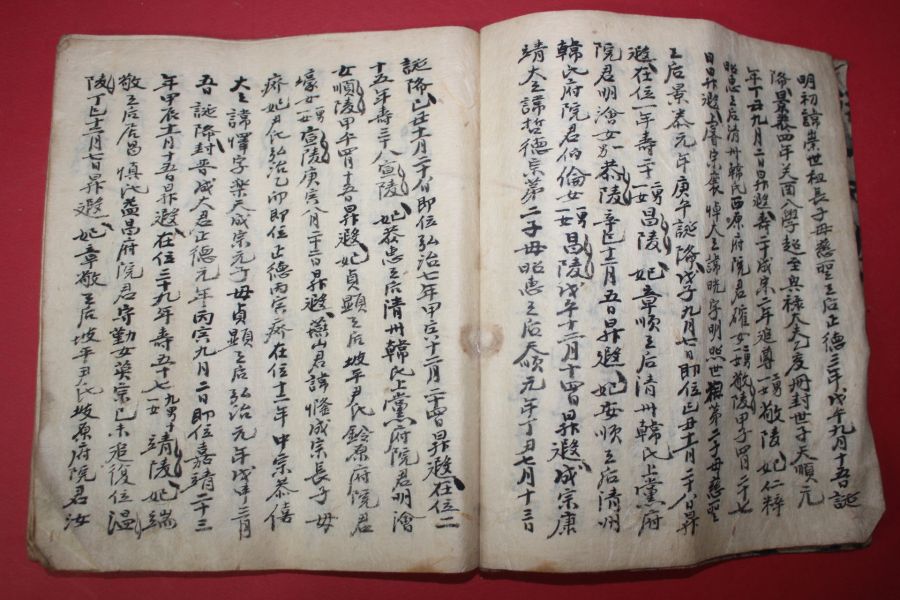 明初諱崇世祖長子母慈聖王后正德三年戊午九月十五日誕
降景泰四年 入學超至興祿大夫後冊封世子天順元
年丁丑九月二日昇遐壽二十歲宋二年追尊一男敬陵妃仁粹
昭惠王后清州韓氏西原府院君確女一男敬陵甲子四月二十七
日昇遐上尊宗襄悼大王諱晄字明照世祖第二子母慈聖
王后景泰元年庚午誕降戊子九月七日即位己丑十一月二十八日昇
遐在位一年壽二十一男昌陵妃章順王后清州韓氏上黨府
院君明澮女 恭陵辛巳十二月五日昇遐妃安順王后清州
韓氏府院君伯倫女一男一女昌陵戊午十二月十四日昇遐成宗康
靖大王諱哲德宗第二子母昭惠王后天順元年丁丑七月十三日
誕降己丑十一月二十八日即位弘治七年甲寅十二月二十四日昇遐在位二
十五年壽三十八宣陵妃恭惠王后清州韓氏上黨府院君明澮
女順陵甲午四月十五日昇遐妃貞顯王后坡平尹氏鈴原府院君
壕女一男一女宣陵庚寅八月二十二日昇遐燕山君諱㦕成宗長子母
廢妃尹氏弘治乙卯即位正德丙寅廢在位十二年中宗恭僖
大王諱懌字樂天成宗元子母貞顯王后弘治元年戊申三月
五日誕降封晋城大君正德元年丙寅九月二日即位嘉靖二十三
年甲辰十一月十五日昇遐在位三十九年壽五十七九男十一女靖陵妃端
敬王后居昌愼氏益昌府院君守勤女英宗己未追復位溫
陵丁巳十二月七日昇遐妃章敬王后坡平尹氏坡原府院君汝